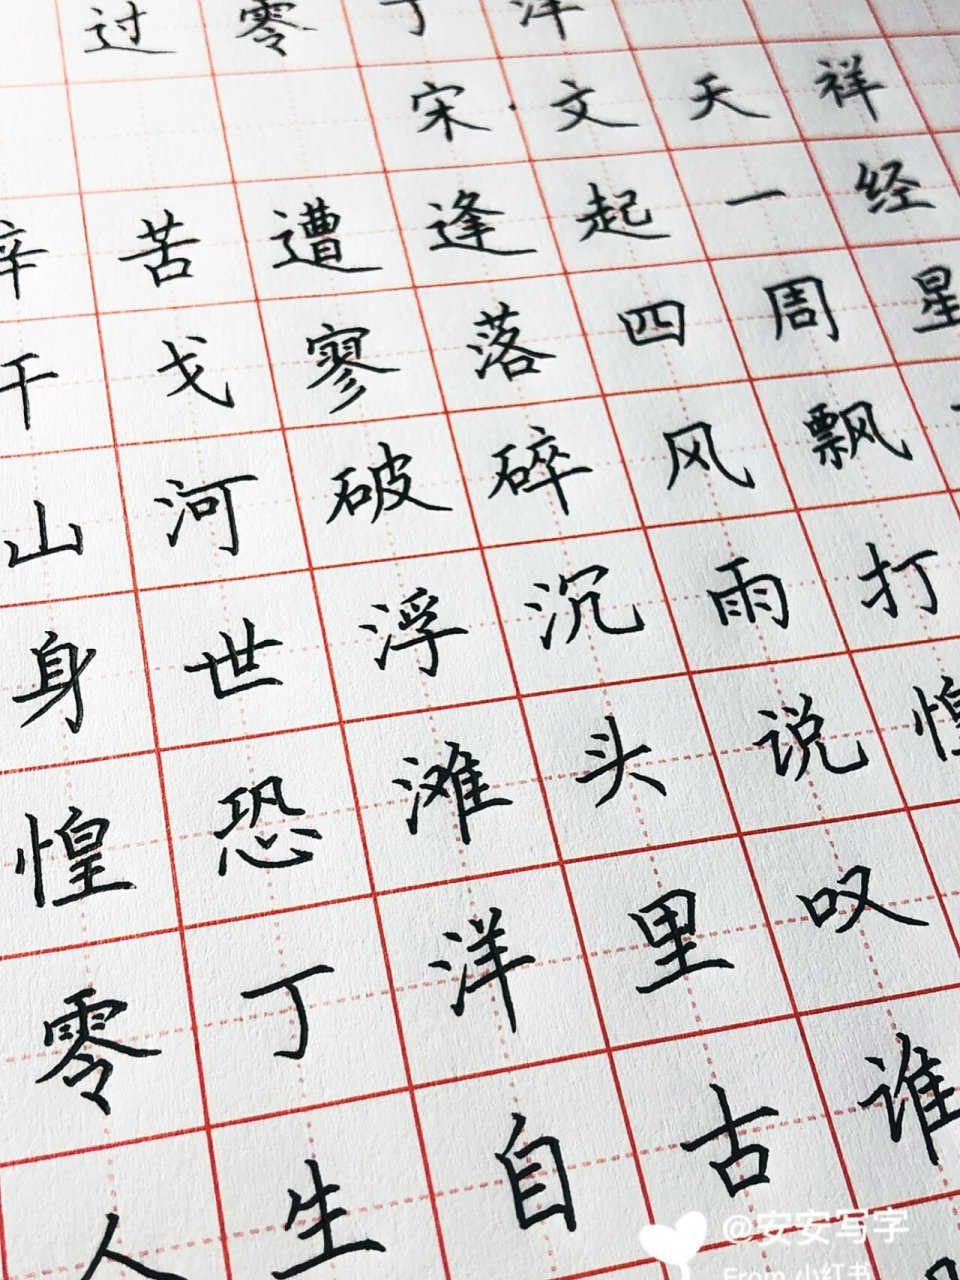 过零丁洋
宋·文天祥
辛苦遭逢起一经
干戈寥落四周星
山河破碎风飘
身世浮沉雨打
惶恐滩头说惶
零丁洋里叹
人生自古谁
@安安写字
From 小红书